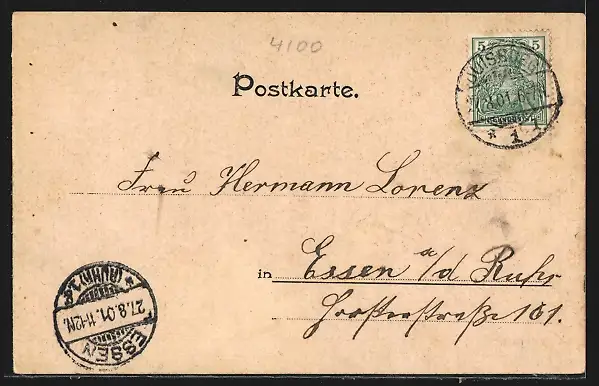 4100
5 5
DUISBURG
.01.
* 1 i
Postkarte.
Frau Hermann Lorenz
in Essen a/d Ruhr
101.
ESSEN
27.8.01.11-12N.
(RUHR)